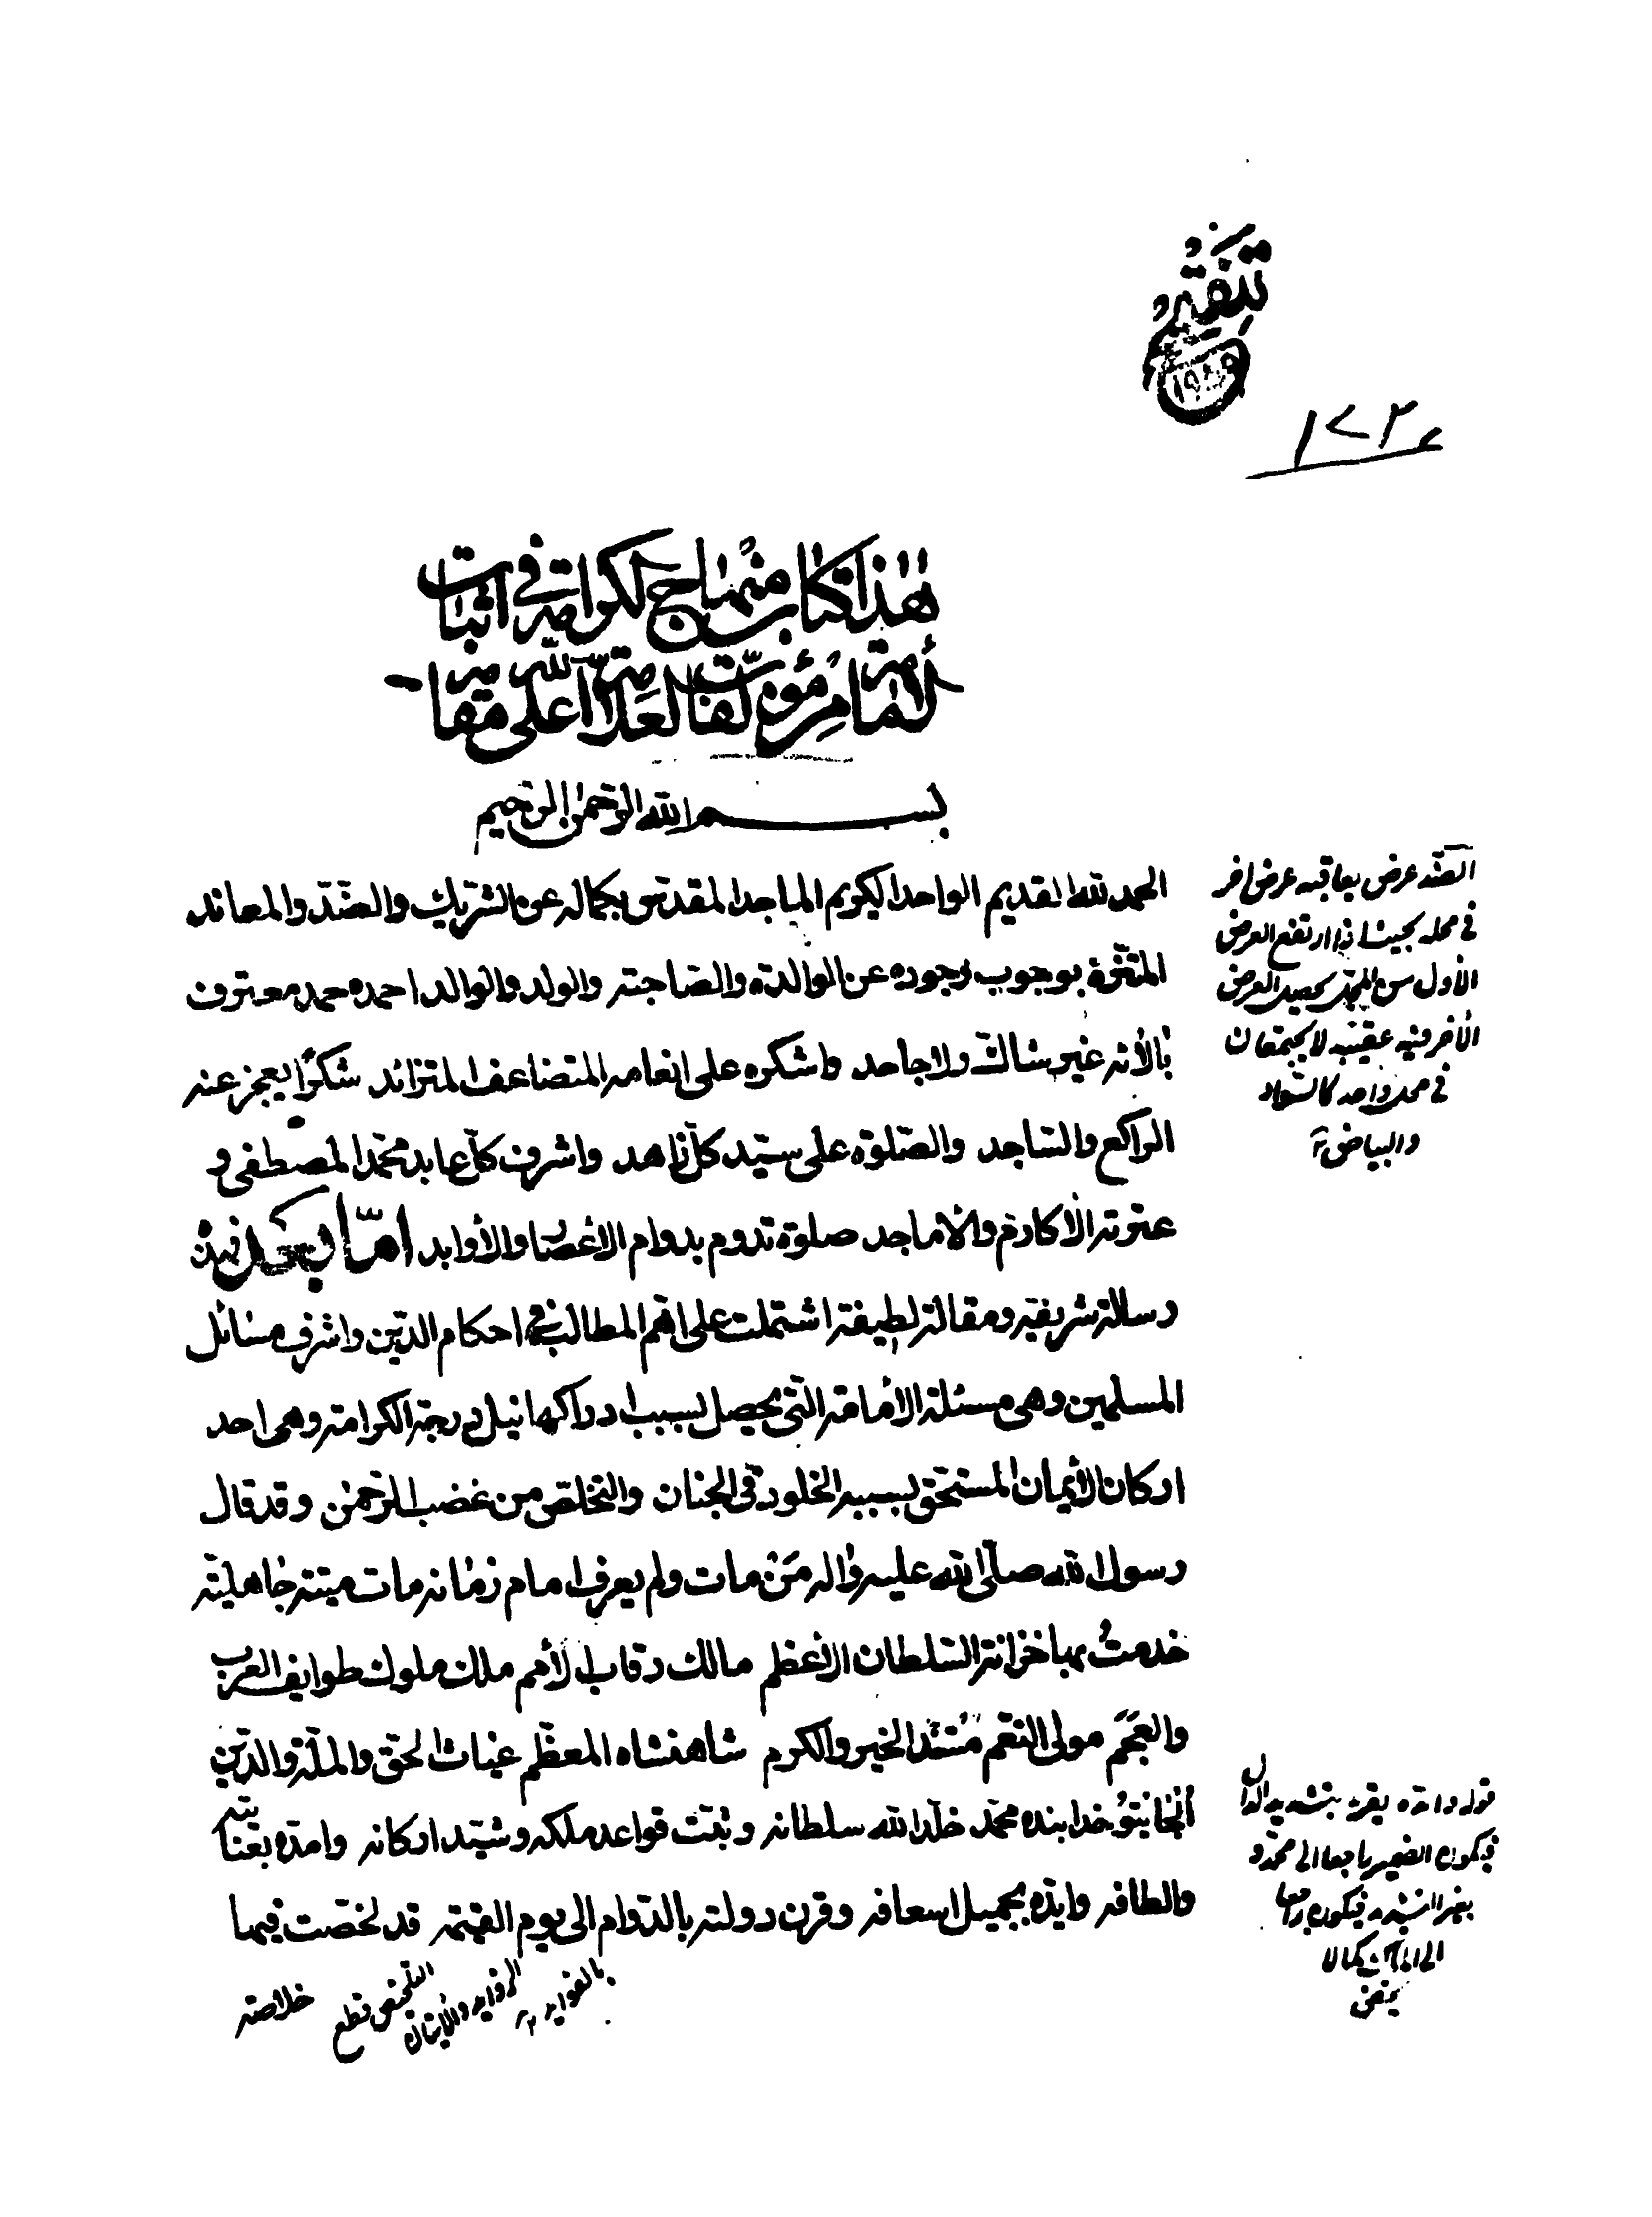 هٰذا كتاب منهاج الكرامة في اثبات
الامامة من مؤلفات العلامة اعلى الله مقامه
بسم الله الرّحمٰن الرّحيم
الحمد لله القديم الواحد الكريم الماجد المقدس بكماله عن الشّريك والضّدّ والمعاند
المتنزّه بوجوب وجوده عن الوالدة والصّاحبة والولد والوالد احمده حمد معترف
بالائه غير شاكّ ولا جاحد واشكره على انعامه المتضاعف المتزائد شكرًا يعجز عنه
الراكع والسّاجد والصّلوة على سيّد كلّ زاهد واشرف كلّ عابد محمّد المصطفى و
عترته الأكارم والاماجد صلوة تدوم بدوام الاعصار والأوابد امّا بعد فهذه
رسالة شريفة ومقالة لطيفة اشتملت على اهمّ المطالب في احكام الدّين واشرف مسائل
المسلمين وهى مسئلة الأمامة الّتى يحصل بسبب ادراكها نيل درجة الكرامة وهى احد
اركان الأيمان المستحق بسببه الخلود فى الجنان والتخلّص من غضب الرّحمٰن وقد قال
رسول الله صلّى الله عليه واله مَنْ مات ولم يعرف امام زمانه مات ميتة جاهليّة
خدمتُ بها خزانة السّلطان الأعظم مالك رقاب الأمم ملك ملوك طوايف العرب
والعجم مولى النّعم مُسند الخير والكرم شاهنشاه المعظّم غياث الحقّ والملّة والدّين
الجايتو خدابنده محمّد خلّد الله سلطانه وثبّت قواعد ملكه وشيّد اركانه وامدّه بعنايته
والطافه وايّده بجميل اسعافه وقرن دولته بالدّوام الى يوم القيمة قد لخّصت فيها
خلاصة
الضّد عرض يعاقبه عرض اخر
في محله بحيث اذا ارتفع العرض
الأول من المحل يحصل العرض
الأخر فيه عقيبه لا يجتمعان
في محل واحد كالسّواد
والبياض
قوله وامدّه يقرء بتشديد الدال
فيكون الضمير راجعا الى محمّد و